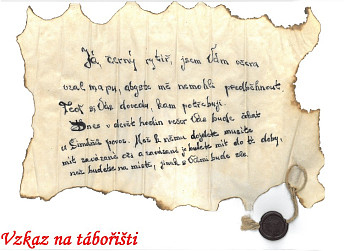 Já, černý rytíř, jsem Vám včera
vzal mapy, abyste mě nemohli předběhnout.
Teď si Vás dovedu, kam potřebuji.
Dnes v devět hodin večer Vás bude čekat
u povoz. Než k němu dojdete musíte
mít zavázané oči a zavázaní je budete mít do té doby,
než budete na místě, jinak s Vámi bude zle.
Vzkaz na tábořišti